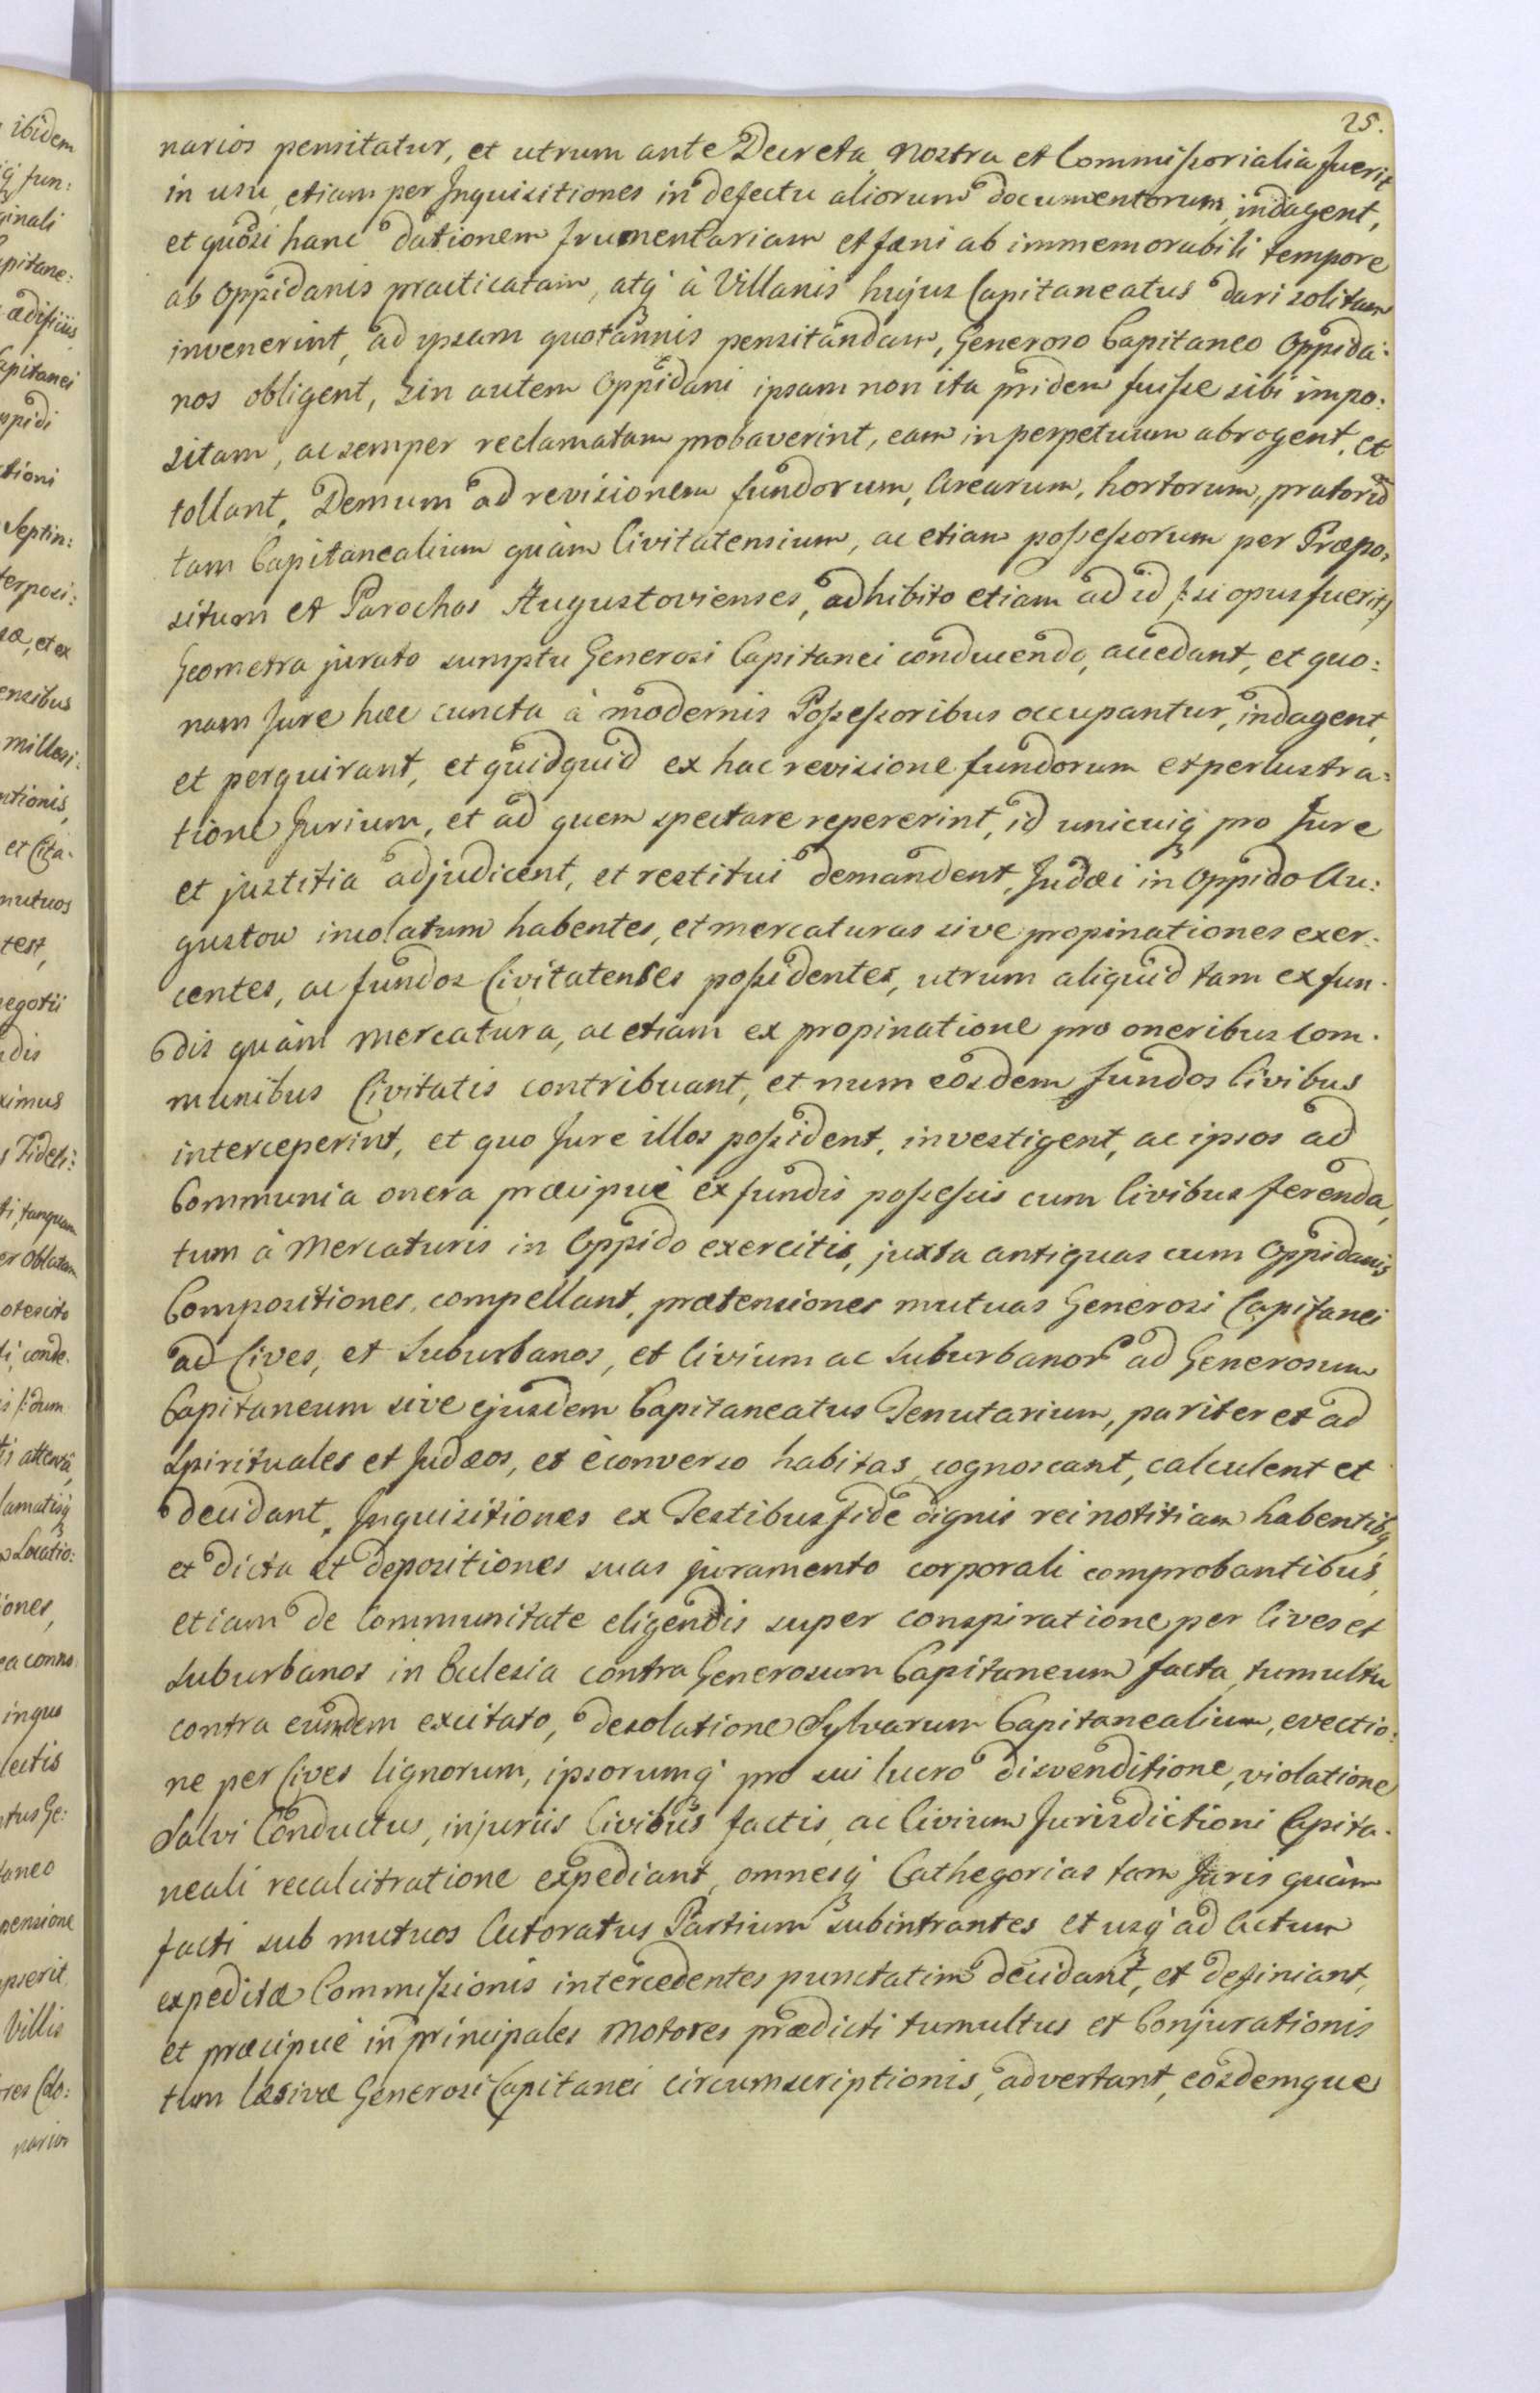 25.
narios pensitatur, et utrum ante Decreta nostra et Commissorialia fuerit
in usu, etiam per Inquisitiones in defectu aliorum documentorum indagent,
et quòsi hanc dationem frumentariam et fæni ab immemorabili tempore
ab Oppidanis practicatam, atq́ à Villanis hujus Capitaneatus dari solitam
invenerint, ad ipsam quotannis pensitandam, Generoso Capitaneo Oppida:
nos obligent, sin autem Oppidani ipsam non ita pridem fuisse sibi impo:
sitam, ac semper reclamatam probaverint, eam in perpetuum abrogent, et
tollant. Demum ad revisionem fundorum, Arearum, hortorum, pratorũ
tam Capitanealium quàm Civitatensium, ac etiam possessorum per Præpo:
situm et Parochos Augustovienses, adhibito etiam ad id /: si opus fuerit :/
Geometra jurato sumptu Generosi Capitanei conducendo, accedant, et quo:
nam Jure hæc cuncta à modernis Possessoribus occupantur, indagent,
et perquirant, et quidquid ex hac revisione fundorum et perlustra:
tione Jurium, et ad quem spectare repererint, id unicuiq́ pro Jure
et justitia adjudicent, et restitui demandent, Judæi in Oppido Au:
gustow incolatum habentes, et mercaturas sive propinationes exer:
centes, ac fundos Civitatenses possidentes, utrum aliquid tam ex fun:
dis quàm mercatura, ac etiam ex propinatione pro oneribus com:
munibus Civitatis contribuant, et num eosdem fundos Civibus
interceperint, et quo Jure illos possident, investigent, ac ipsos ad
Communia onera præcipuè ex fundis possessis cum Civibus ferenda,
tum à Mercaturis in Oppido exercitis, juxta antiquas cum Oppidanis
Compositiones, compellant, prætensiones mutuas Generosi Capitanei
ad Cives, et Suburbanos, et Civium ac Suburbanor ad Generosum
Capitaneum sive ejusdem Capitaneatus Tenutarium, pariter et ad
Spirituales et Judæos, et èconverso habitas, cognoscant, calculent et
decidant. Inquisitiones ex Testibus fide dignis rei notitiam habentibq
et dicta et depositiones suas juramento corporali comprobantibus,
etiam de Communitate eligendis super conspiratione per Cives et
Suburbanos in Ecclesia contra Generosum Capitaneum facta, tumultu
contra eumdem excitato, desolatione Sylvarum Capitanealium, evectio:
ne per Cives lignorum, ipsorumq́ pro sui lucro disvenditione, violatione
Salvi Conductus, injuriis Civibus factis, ac Civium Jurisdictioni Capita:
neali recalcitratione expediant, omnesq́ Cathegorias tam Juris quàm
facti sub mutuos Actoratus Partium subintrantes et usq́ ad Actum
expeditæ Commissionis intercedentes punctatim decidant, et definiant,
et præcipuè in principales Motores prædicti tumultus et Conjurationis
tum læsivæ Generosi Capitanei circumscriptionis, advertant, eosdemque